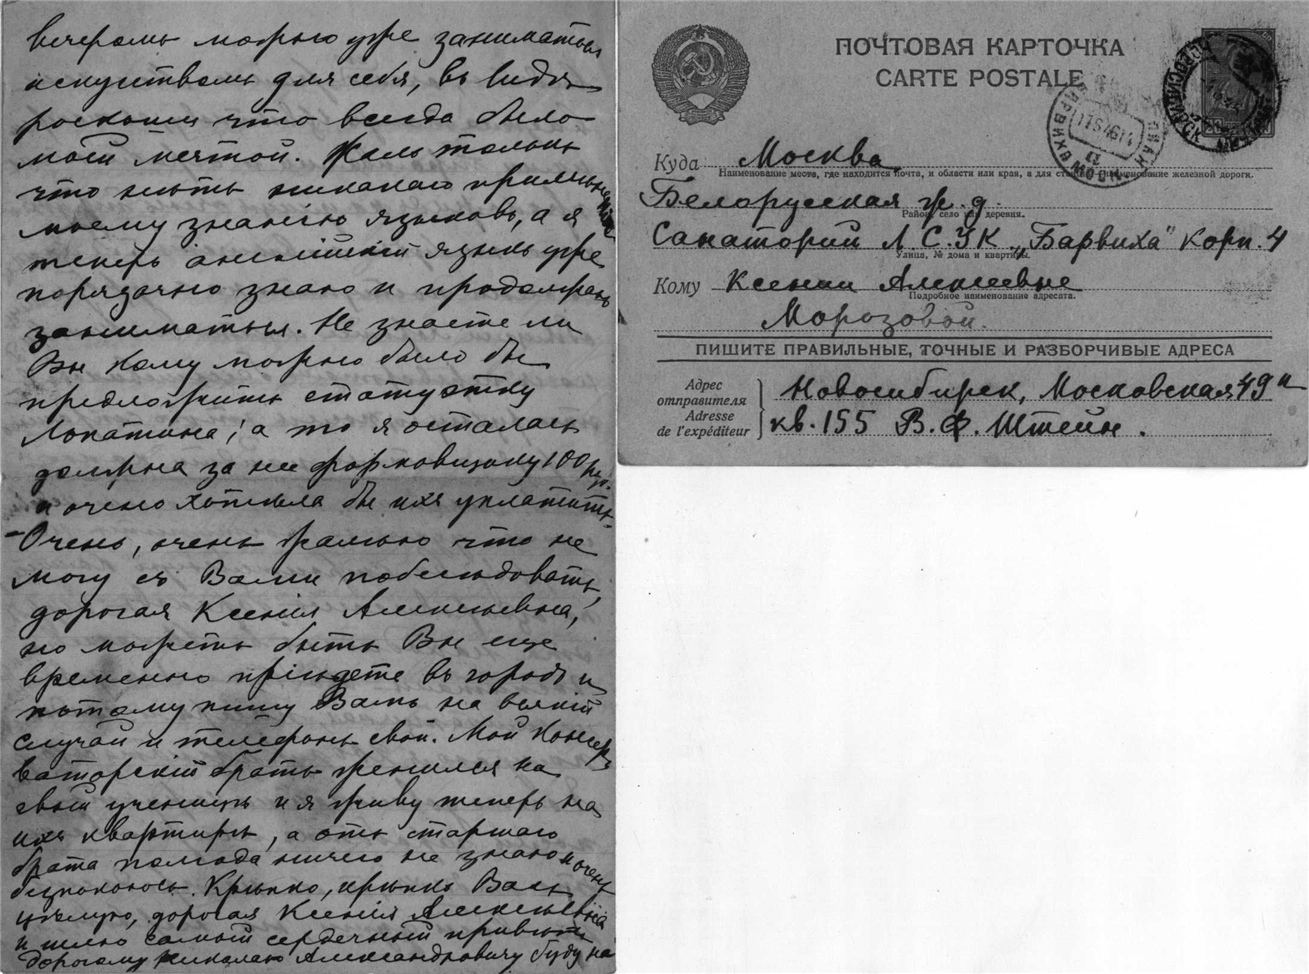 вечеромъ могу уже заниматься
искуствомъ для себя, въ видѣ
роскоши что всегда было
моей мечтой. Жаль только
что нѣтъ никакого примѣненія
моему знанію языковъ, а я
теперь англійскій языкъ уже
порядочно знаю и продолжаю
заниматься. Не знаете ли
Вы кому можно было бы
предложить статуэтку
Лопатина; а то я осталась
должна за нее формовщику 100 руб.
и очень хотѣла бы ихъ уплатить.
– Очень, очень жалѣю что не
могу съ Вами побесѣдовать,
дорогая Ксенія Алексѣевна,
но можетъ быть Вы еще
временно пріѣдете въ городъ и
потому пишу Вамъ на всякій
случай и телефонъ свой. Мой консер-
ваторскій братъ женился на
своей ученицѣ и я живу теперь на
ихъ квартирѣ, а отъ старшаго
брата полгода ничего не знаю и очень
безпокоюсь. Крѣпко, крѣпко Васъ
цѣлую, дорогая Ксенія Алексѣевна
и шлю самый сердечный привѣтъ
дорогому Николаю Александровичу буду на
ПОЧТОВАЯ КАРТОЧКА
CARTE POSTALE
Куда Москва
Наименование места, где находится почта, и области или края, а для станций наименование железной дороги.
Белорусская ж. д.
Район, село или деревня.
Санаторий Л.С.У.К. „Барвиха" корп. 4
Улица, № дома и квартиры.
Кому Ксении Алексеевне
Подробное наименование адресата.
Морозовой.
ПИШИТЕ ПРАВИЛЬНЫЕ, ТОЧНЫЕ И РАЗБОРЧИВЫЕ АДРЕСА
Адрес
отправителя
Adresse
de l'expéditeur
Новосибирск, Московская 49а
кв. 155 В. Ф. Штейн.